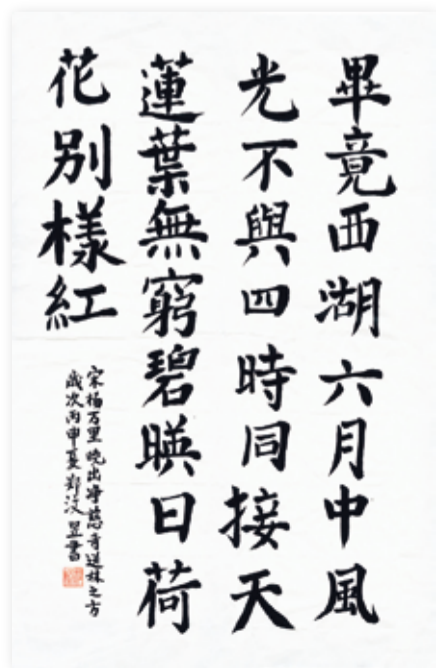 畢竟西湖六月中風
光不與四時同接天
蓮葉無窮碧暎日荷
花別樣紅
宋楊万里晓出淨慈寺送林之方
歲次丙申夏鄭汶昱書